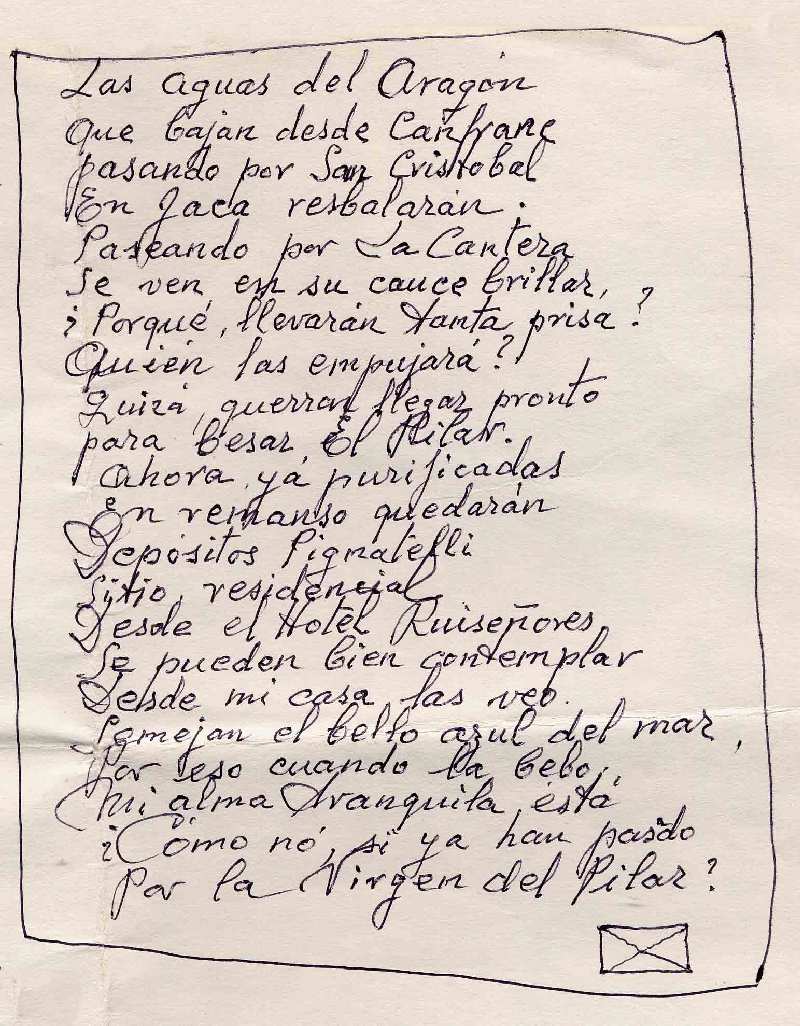 Las aguas del Aragón
que bajan desde Canfranc
pasando por San Cristobal
En Jaca resbalarán.
Paseando por La Cantera
Se ven, en su cauce brillar,
¿Porqué, llevarán tanta, prisa?
Quién las empujará?
Quizá, querran llegar pronto
para besar, El Pilar.
ahora, yá purificadas
En remanso quedarán
Depósitos Pignatelli
Sitio, residencial,
Desde el Hotel Ruiseñores,
Se pueden bien contemplar
Desde mi casa las veo.
Semejan el bello azul del mar,
Por eso cuando la bebo,
Mi alma tranquila, está
¿Cómo nó, si ya han pasado
Por la Virgen del Pilar?